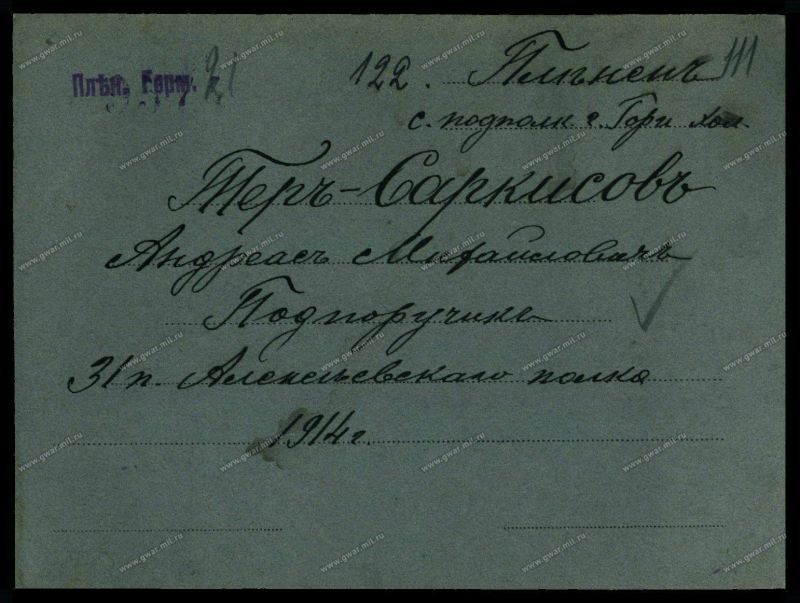 Плѣн. Герм. 21
122. Плѣненъ 111
с. подполк. г. Гори
Теръ-Саркисовъ
Андреасъ Михайловичъ
Подпоручикъ
31 п. Алексѣевскаго полка
1914 г.
www.gwar.mil.ru